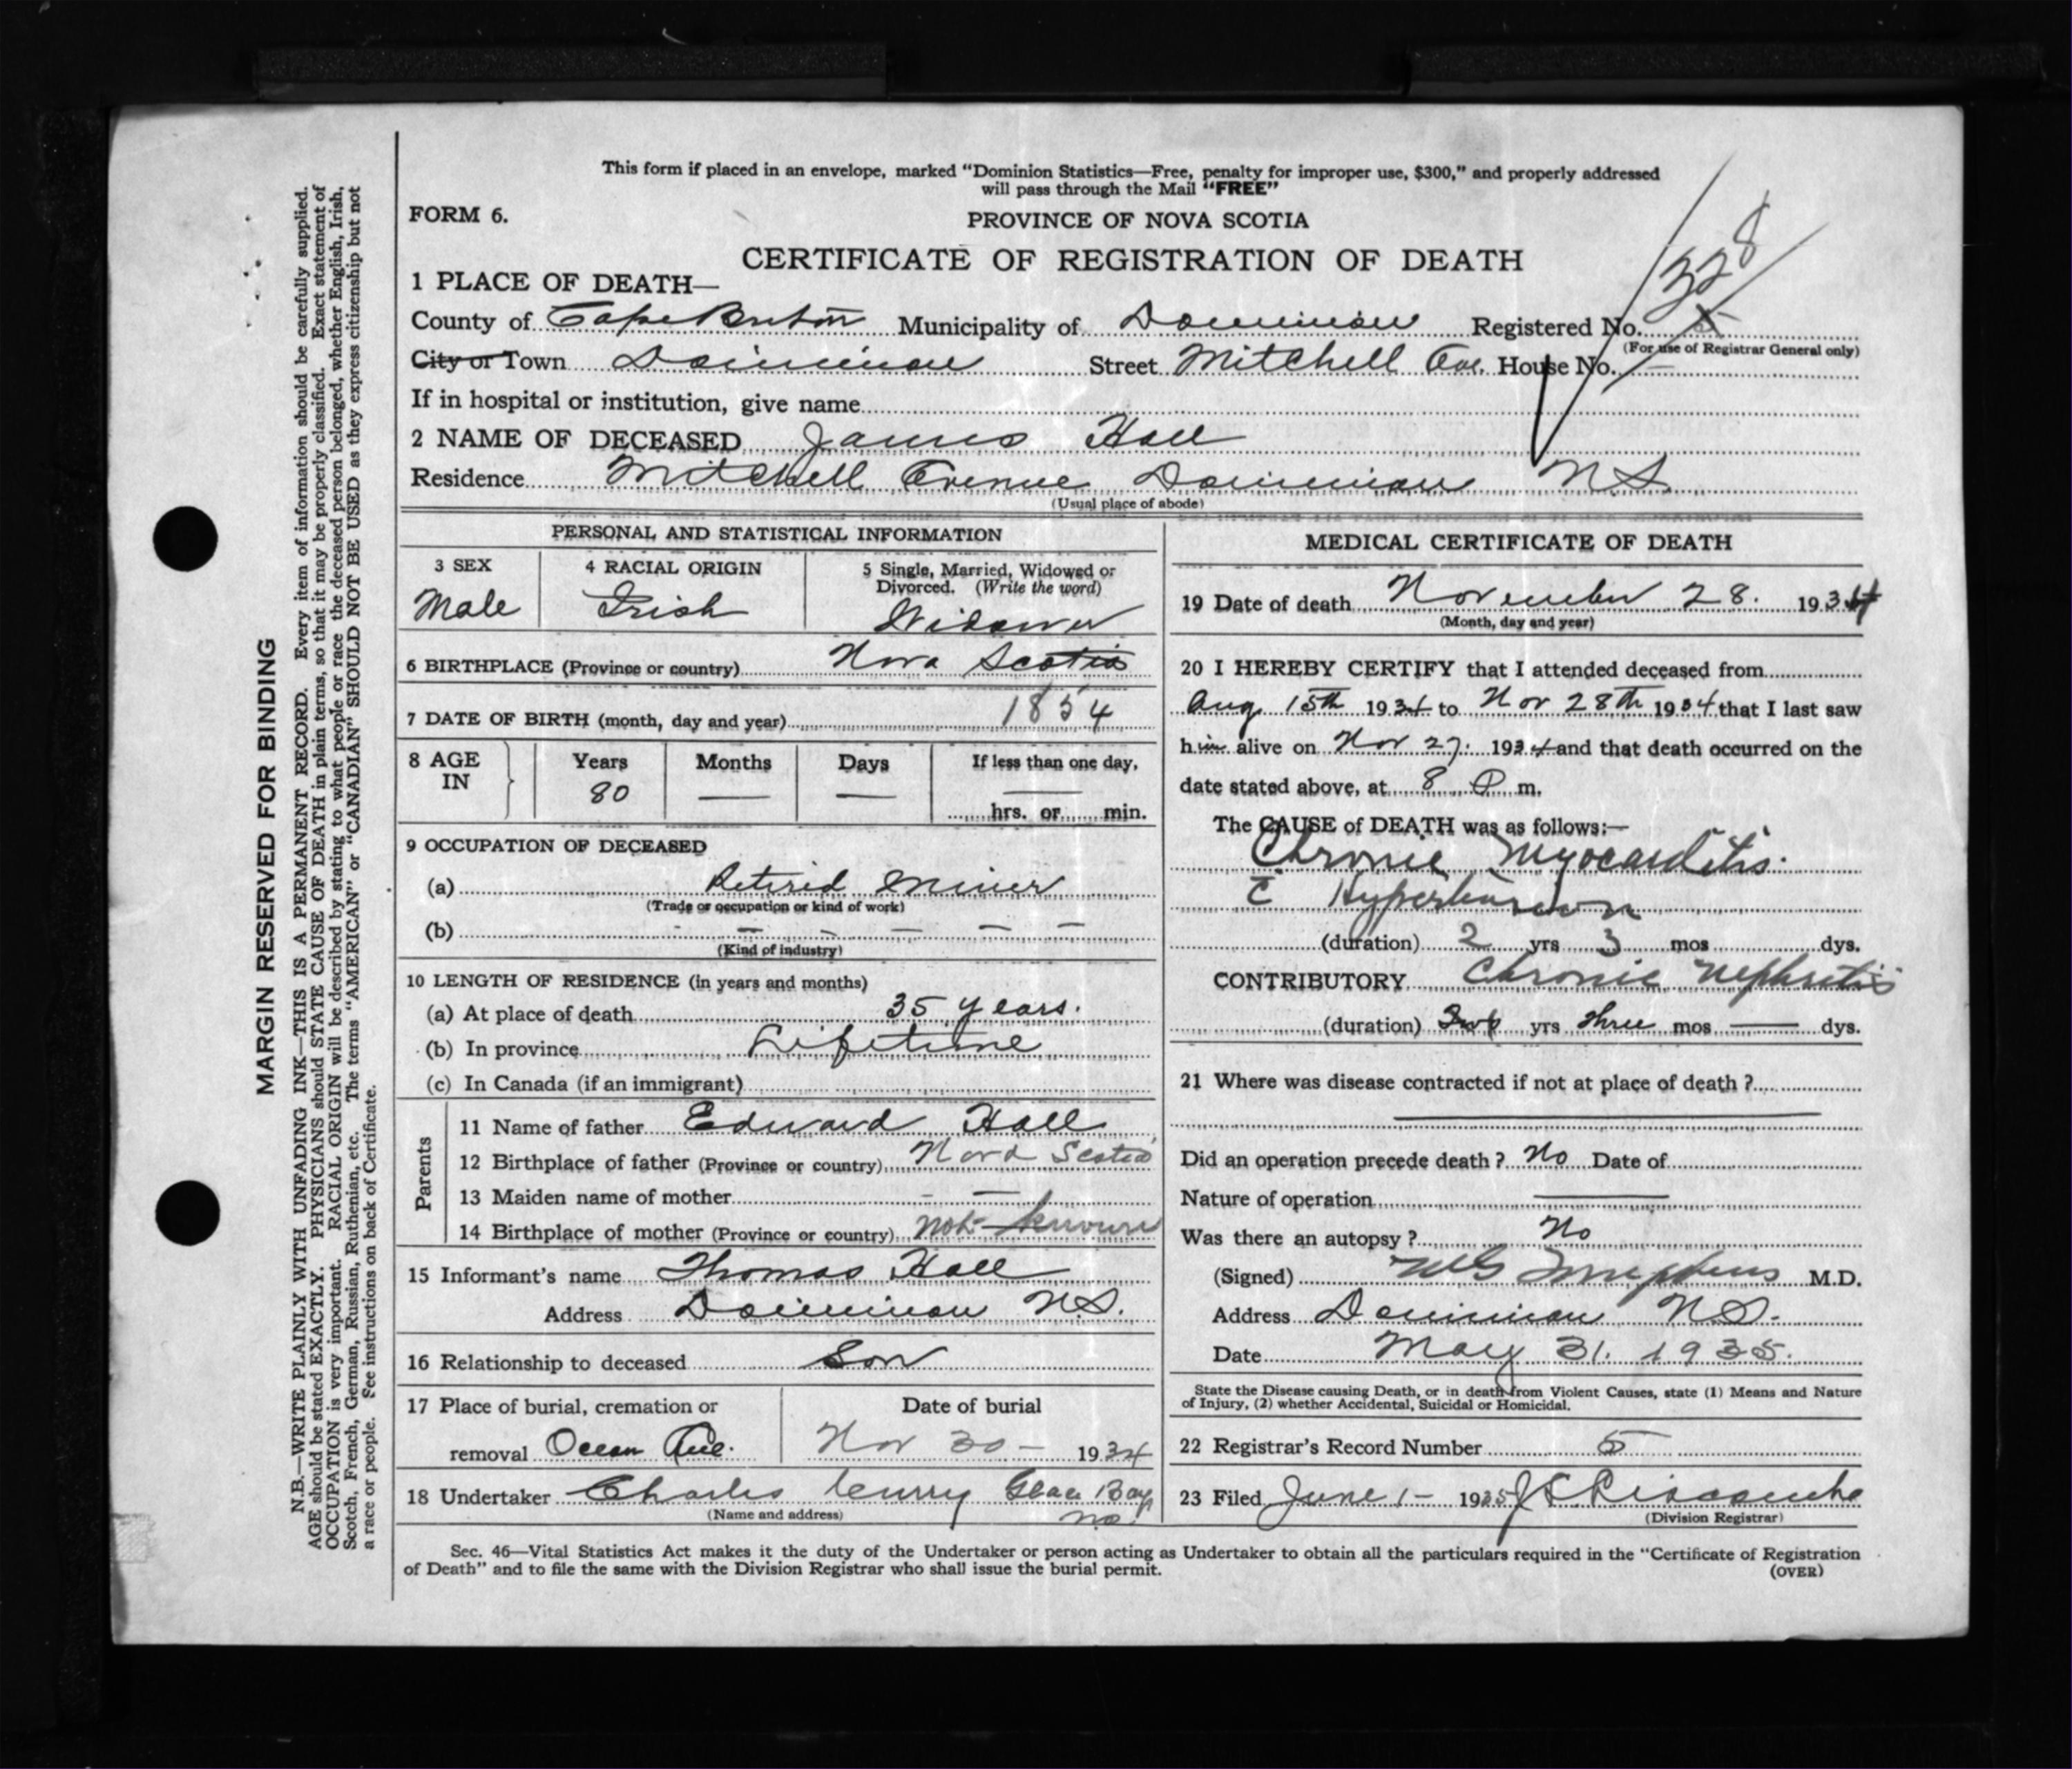 This form if placed in an envelope, marked “Dominion Statistics—Free, penalty for improper use, $300,” and properly addressed
will pass through the Mail “FREE”
FORM 6.
PROVINCE OF NOVA SCOTIA
CERTIFICATE OF REGISTRATION OF DEATH
328
1 PLACE OF DEATH—
County of Cape Breton Municipality of Dominion Registered No.
(For use of Registrar General only)
City or Town Dominion Street Mitchell Ave. House No. —
If in hospital or institution, give name
2 NAME OF DECEASED James Hall
Residence Mitchell Avenue Dominion N S
(Usual place of abode)
PERSONAL AND STATISTICAL INFORMATION
3 SEX
Male
4 RACIAL ORIGIN
Irish
5 Single, Married, Widowed or
Divorced. (Write the word)
Widower
6 BIRTHPLACE (Province or country) Nova Scotia
7 DATE OF BIRTH (month, day and year) 1854
8 AGE
IN
Years
80
Months
—
Days
—
If less than one day,
—
hrs. or min.
9 OCCUPATION OF DECEASED
(a) Retired Miner
(Trade or occupation or kind of work)
(b) — — — — —
(Kind of industry)
10 LENGTH OF RESIDENCE (in years and months)
(a) At place of death 35 years.
(b) In province Lifetime
(c) In Canada (if an immigrant)
Parents
11 Name of father Edward Hall
12 Birthplace of father (Province or country) Nova Scotia
13 Maiden name of mother — —
14 Birthplace of mother (Province or country) not known
15 Informant's name Thomas Hall
Address Dominion N.S.
16 Relationship to deceased Son
17 Place of burial, cremation or
removal Ocean Ave.
Date of burial
Nov 30 — 1934
18 Undertaker Charles Curry Glace Bay
N.S.
(Name and address)
MEDICAL CERTIFICATE OF DEATH
19 Date of death November 28. 1934
(Month, day and year)
20 I HEREBY CERTIFY that I attended deceased from
Aug 15th 1934 to Nov 28th 1934 that I last saw
him alive on Nov 27. 1934 and that death occurred on the
date stated above, at 8 P m.
The CAUSE of DEATH was as follows:—
Chronic Myocarditis.
c̄ Hypertension
(duration) 2 yrs 3 mos dys.
CONTRIBUTORY Chronic Nephritis
(duration) Two yrs three mos — dys.
21 Where was disease contracted if not at place of death ?
Did an operation precede death ? No Date of
Nature of operation —
Was there an autopsy ? No
(Signed) M.D.
Address Dominion N.S.
Date May 31. 1935.
State the Disease causing Death, or in death from Violent Causes, state (1) Means and Nature
of Injury, (2) whether Accidental, Suicidal or Homicidal.
22 Registrar's Record Number 5
23 Filed June 1- 1935
(Division Registrar)
Sec. 46—Vital Statistics Act makes it the duty of the Undertaker or person acting as Undertaker to obtain all the particulars required in the “Certificate of Registration
of Death” and to file the same with the Division Registrar who shall issue the burial permit.
(OVER)
MARGIN RESERVED FOR BINDING
N.B.—WRITE PLAINLY WITH UNFADING INK—THIS IS A PERMANENT RECORD. Every item of information should be carefully supplied.
AGE should be stated EXACTLY. PHYSICIANS should STATE CAUSE OF DEATH in plain terms, so that it may be properly classified. Exact statement of
OCCUPATION is very important. RACIAL ORIGIN will be described by stating to what people or race the deceased person belonged, whether English, Irish,
Scotch, French, German, Russian, Ruthenian, etc. The terms “AMERICAN” or “CANADIAN” SHOULD NOT BE USED as they express citizenship but not
a race or people. See instructions on back of Certificate.